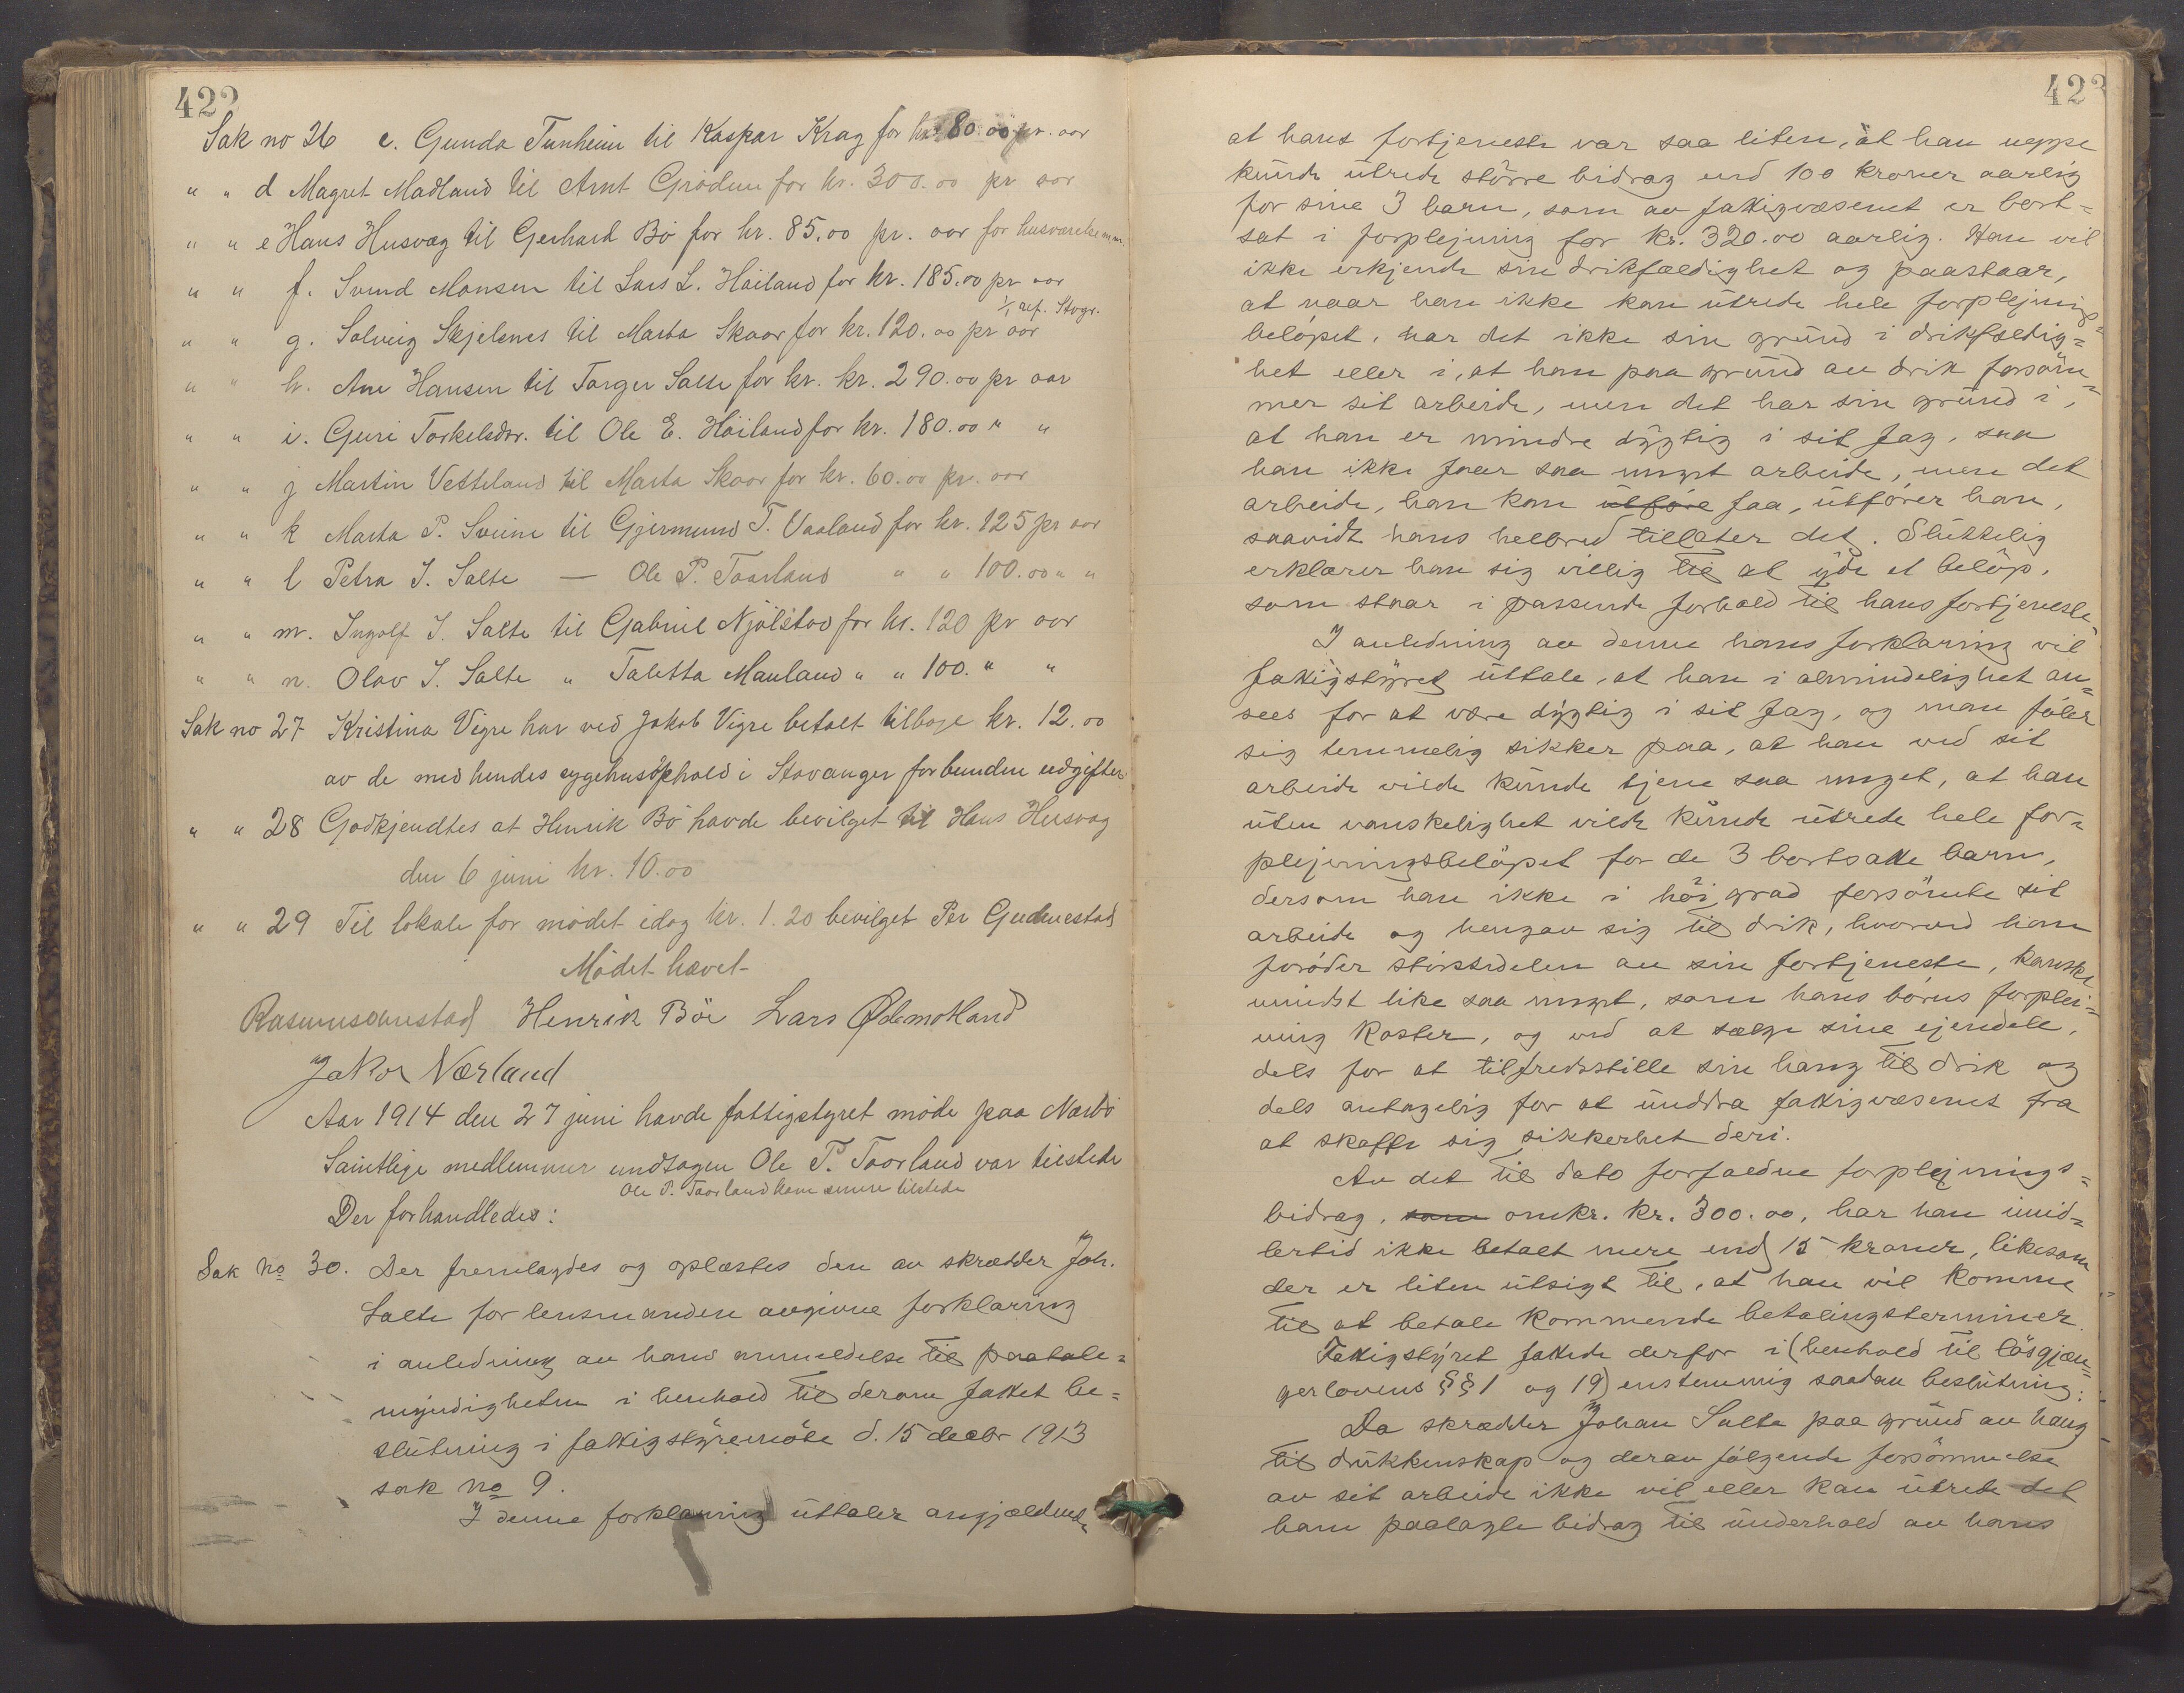 422
Sak no 26 c. Gunda Tunheim til Kaspar Krag for kr. 80.00 pr. aar
" " d Magret Madland til Arnt Grödem for kr. 300.00 pr aar
" " e Hans Husvæg til Gerhard Bö for kr. 85.00 pr. aar for husværelse m.m.
" " f. Svend Monsen til Lars L. Höiland for kr. 185.00 pr aar
1/1 ref. Stvgr.
" " g. Solveig Skjelenes til Marta Skaar for kr. 120.00 pr aar
" " h. Ane Hansen til Torger Salte for kr. kr. 290.00 pr aar
" " i. Guri Torkelsdtr. til Ole E. Höiland for kr. 180.00 " "
" " j Martin Vetteland til Marta Skaar for kr. 60.00 pr. aar
" " k Marta P. Sveine til Gjermund T. Vaaland for kr. 125 pr aar
" " l Petra J. Salte — Ole P. Taarland " " 100.00 " "
" " m. Ingolf J. Salte til Gabriel Njölstad for kr. 120 pr aar
" " n. Olav J. Salte " Taletta Mauland " " 100. " "
Sak no 27 Kristina Vigre har ved Jakob Vigre betalt tilbage kr. 12.00
av de med hendes sygehusöphold i Stavanger forbundne udgifter
" " 28 Godkjendtes at Henrik Bö havde bevilget til Hans Husvæg
den 6 juni kr. 10.00
" " 29 Til lokale for mödet idag kr. 1.20 bevilget Per Gudmestad
Mödet hævet
Rasmus Anestad Henrik Böe Lars Ødemotland
Jakob Nærland
Aar 1914 den 27 juni havde fattigstyret möde paa Nærbö
Samtlige medlemmer undtagen Ole P. Taarland var tilstede
Ole P. Taarland kom senere tilstede
Der forhandledes:
Sak No 30. Der fremlagdes og oplæstes den av skrædder Joh.
Salte for lensmanden avgivne forklaring
i anledning av hans anmeldelse til paatale=
myndigheten i henhold til derom fattet be=
slutning i fattigstyremöte d. 15 decbr 1913
sak No 9.
I denne forklaring uttaler angjældende
423
at hans fortjeneste var saa liten, at han neppe
kunde utrede större bidrag end 100 kroner aarlig
for sine 3 barn, som av fattigvæsenet er bort=
sat i forplejning for kr. 320.00 aarlig. Han vil
ikke erkjende sin drikfældighet og paastaar,
at naar han ikke kan utrede hele forplejnings=
belöpet, har det ikke sin grund i drikfældig=
het eller i, at han paa grund av drik forsöm=
mer sit arbeide, men det har sin grund i,
at han er mindre dygtig i sit fag, saa
han ikke faar saa meget arbeide, men det
arbeide, han kan utföre faa, utförer han,
saavidt hans helbred tillater det. Sluttelig
erklærer han sig villig til at yde et belöp,
som staar i passende forhold til hans fortjeneste.
I anledning av denne hans forklaring vil
fattigstyret uttale, at han i almindelighet an=
sees for at være dygtig i sit fag, og man föler
sig temmelig sikker paa, at han ved sit
arbeide vilde kunde tjene saa meget, at han
uten vanskelighet vilde kunde utrede hele for=
plejningsbelöpet for de 3 bortsatte barn,
dersom han ikke i höi grad forsömte sit
arbeide og hengav sig til drik, hvorved han
foröder störstedelen av sin fortjeneste, kanske
mindst like saa meget, som hans börns forplei=
ning koster, og ved at sælge sine ejendele,
dels for at tilfredsstille sin hang til drik og
dels antagelig for at unddra fattigvæsenet fra
at skaffe sig sikkerhet deri.
Av det til dato forfaldne forplejnings=
bidrag, som omkr. kr. 300.00, har han imid=
lertid ikke betalt mere end 15 kroner, likesom
der er liten utsigt til, at han vil komme
til at betale kommende betalingsterminer.
Fattigstyret fattede derfor i (henhold til lösgjæn=
gerlovens §§ 1 og 19) enstemmig saadan beslutning:
Da skrædder Johan Salte paa grund av hang
til drukkenskap og derav fölgende forsömmelse
av sit arbeide ikke vil eller kan utrede det
ham paalagte bidrag til underhold av hans